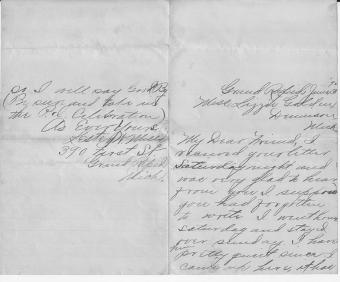 so I will say Good By
(By sure and take in
the Celebration)
As Ever Yours
390 First St
Grand Rapids
Mich.
Grand Rapids June
Miss Lizzie
Mich
My Dear Friend, I
received your letter
Saturday night and
was very glad to hear
from you I suppose
you had forgotten
to write I went home
Saturday and stayed
over sunday I have
pretty since I
came up here,